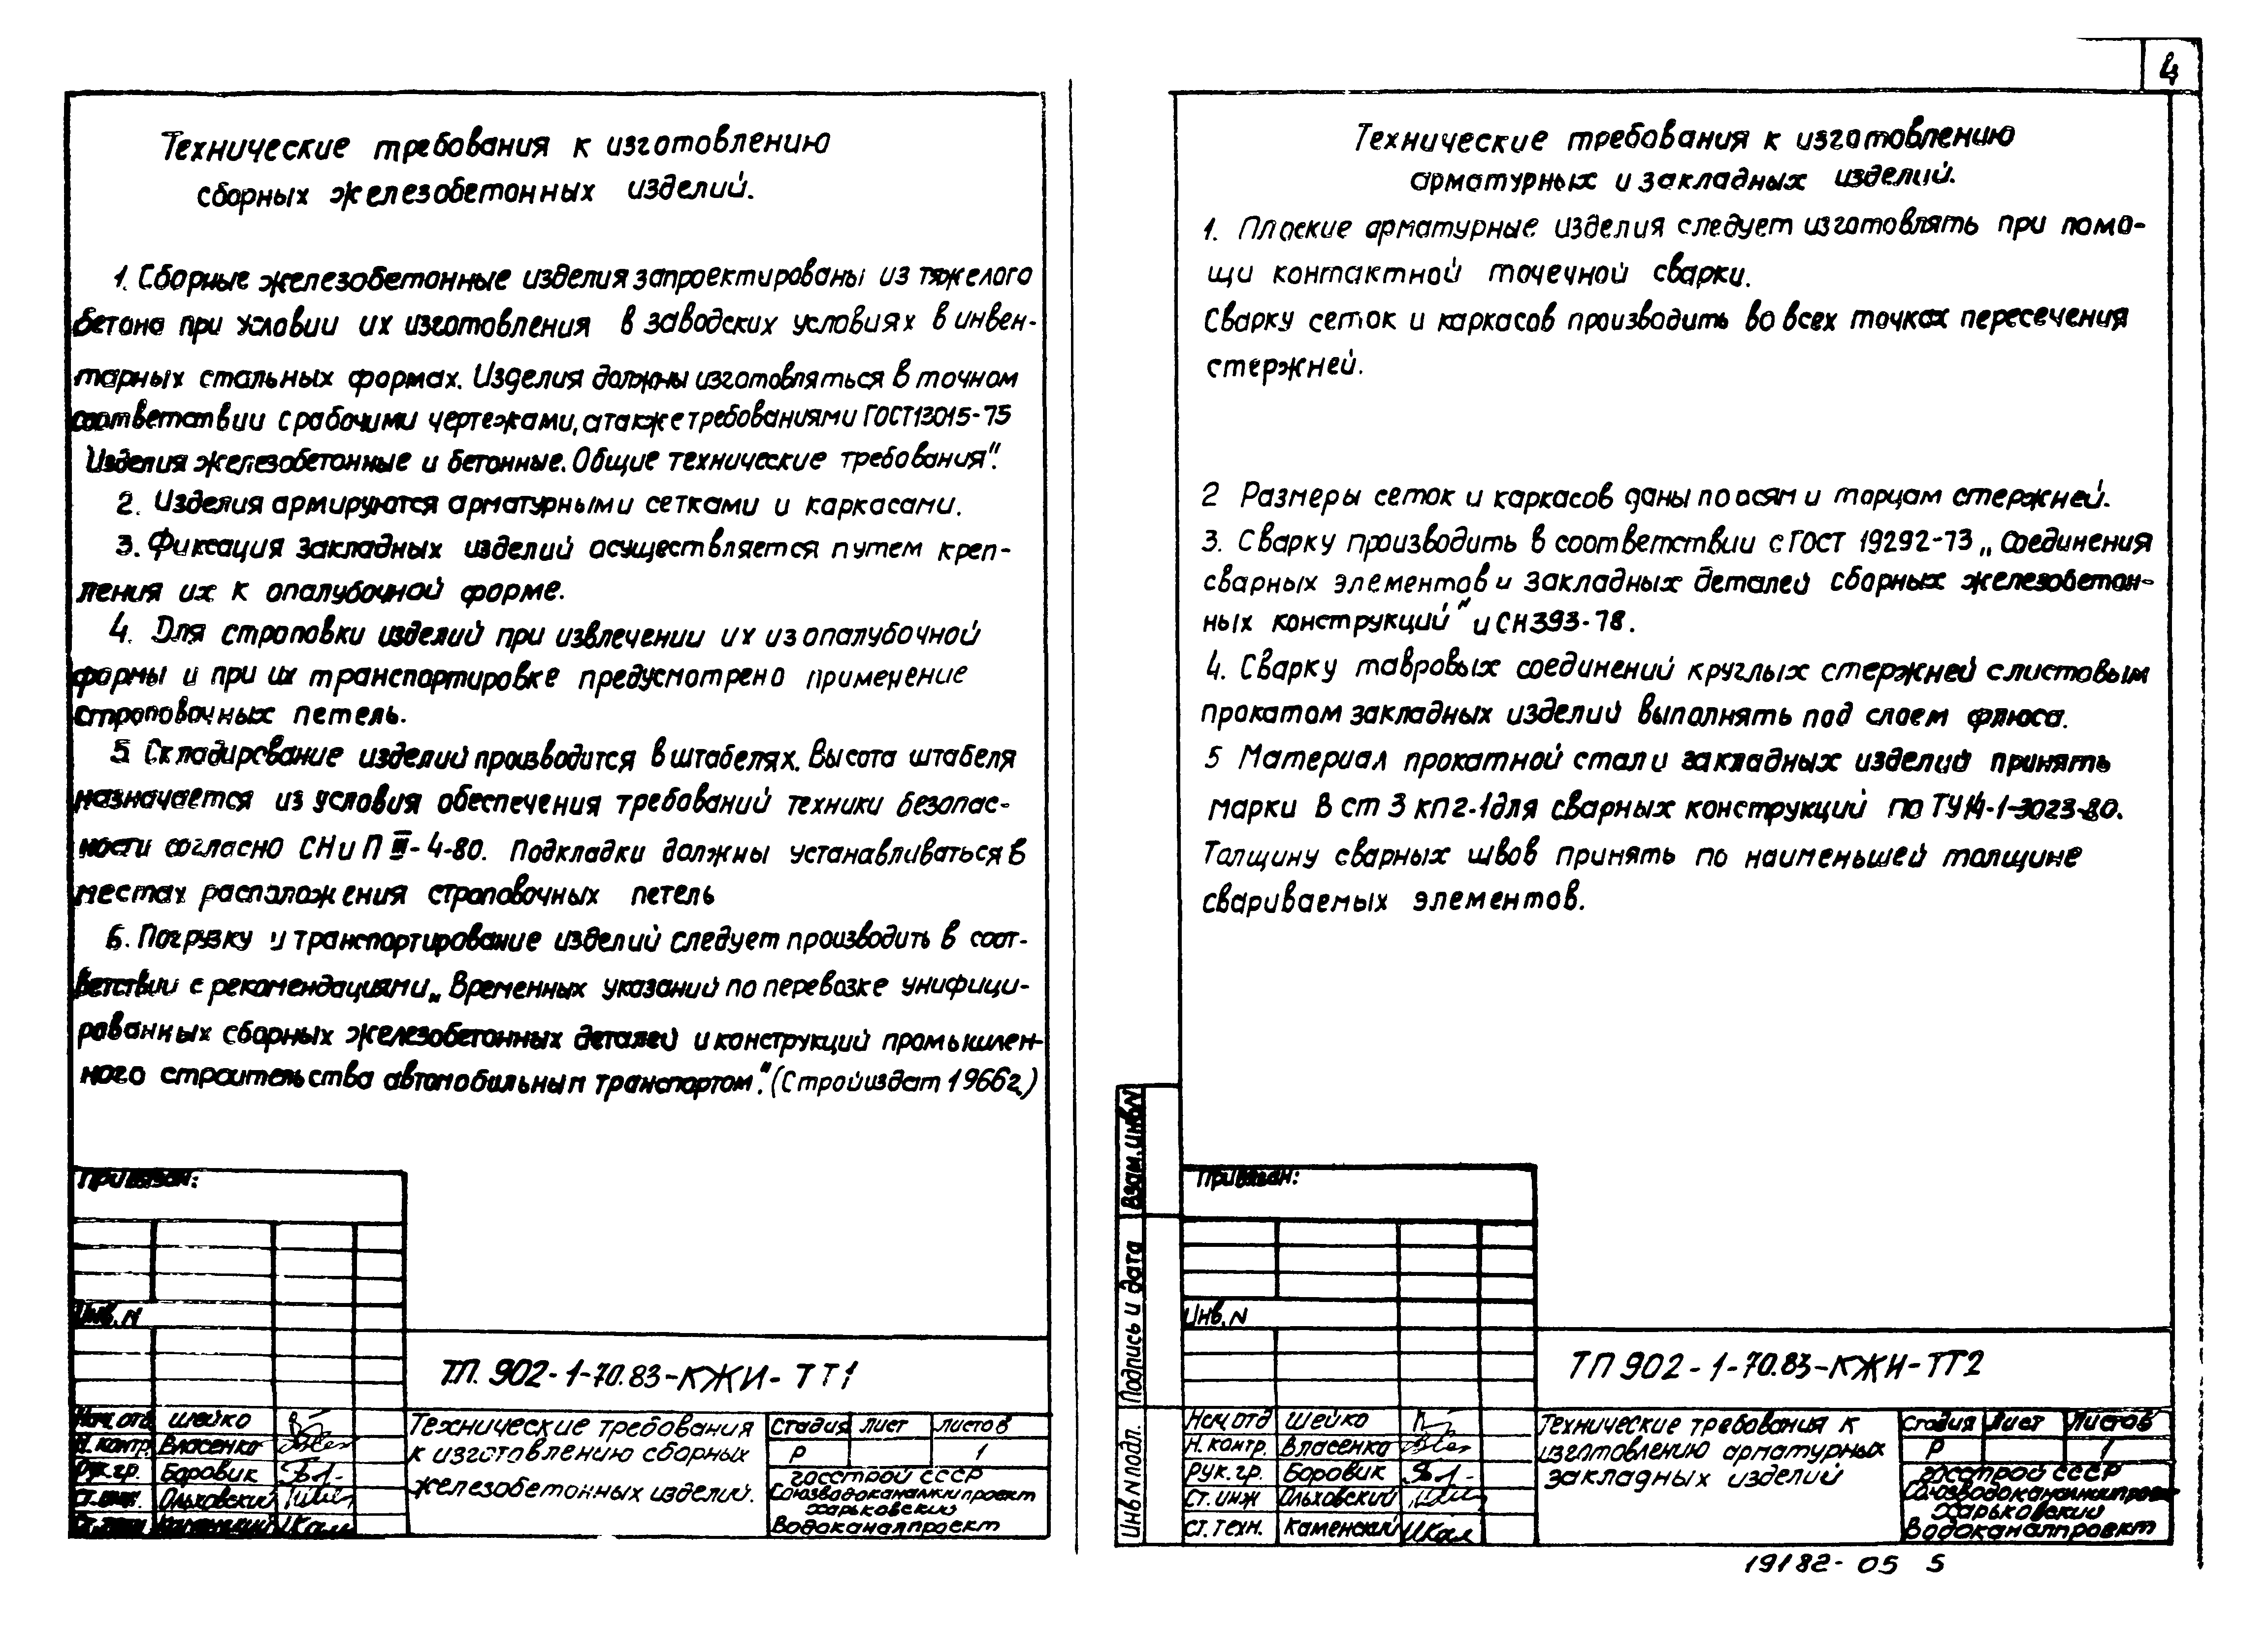 4
Технические требования к изготовлению
сборных железобетонных изделий.
1. Сборные железобетонные изделия запроектированы из тяжелого
бетона при условии их изготовления в заводских условиях в инвен-
тарных стальных формах. Изделия должны изготовляться в точном
соответствии с рабочими чертежами, а также требованиями ГОСТ 13015-75
Изделия железобетонные и бетонные. Общие технические требования".
2. Изделия армируются арматурными сетками и каркасами.
3. Фиксация закладных изделий осуществляется путем креп-
ления их к опалубочной форме.
4. Для строповки изделий при извлечении их из опалубочной
формы и при их транспортировке предусмотрено применение
строповочных петель.
5. Складирование изделий производится в штабелях. Высота штабеля
назначается из условия обеспечения требований техники безопас-
ности согласно СНиП III-4-80. Подкладки должны устанавливаться в
местах расположения строповочных петель
6. Погрузку и транспортирование изделий следует производить в соот-
ветствии с рекомендациями „Временных указаний по перевозке унифици-
рованных сборных железобетонных деталей и конструкций промышлен-
ного строительства автомобильным транспортом." (Стройиздат 1966г.)
Привязан:
Инв. N
ТП. 902-1-70.83-КЖИ-ТТ1
Нач. отд. Шейко
Н. контр. Власенко
Рук. гр. Боровик
Ст. инж. Ольховский
Ст. техн. Каменский
Технические требования
к изготовлению сборных
железобетонных изделий.
Стадия Лист Листов
Р 1
Госстрой СССР
Союзводоканалниипроект
Харьковский
Водоканалпроект
Технические требования к изготовлению
арматурных и закладных изделий.
1. Плоские арматурные изделия следует изготовлять при помо-
щи контактной точечной сварки.
Сварку сеток и каркасов производить во всех точках пересечения
стержней.
2 Размеры сеток и каркасов даны по осям и торцам стержней.
3. Сварку производить в соответствии с ГОСТ 19292-73 „Соединения
сварных элементов и закладных деталей сборных железобетон-
ных конструкций" и СН 393-78.
4. Сварку тавровых соединений круглых стержней с листовым
прокатом закладных изделий выполнять под слоем флюса.
5 Материал прокатной стали закладных изделий принять
марки В ст 3 кп2-1 для сварных конструкций по ТУ 14-1-3023-80.
Толщину сварных швов принять по наименьшей толщине
свариваемых элементов.
Взам. инв. N
Подпись и дата
Инв N подл.
Привязан:
Инв. N
ТП 902-1-70.83-КЖИ-ТТ2
Нач. отд Шейко
Н. контр. Власенко
Рук. гр. Боровик
Ст. инж Ольховский
Ст. техн. Каменский
Технические требования к
изготовлению арматурных
закладных изделий
Стадия Лист Листов
Р 1
Госстрой СССР
Союзводоканалниипроект
Харьковский
Водоканалпроект
19182-05 5